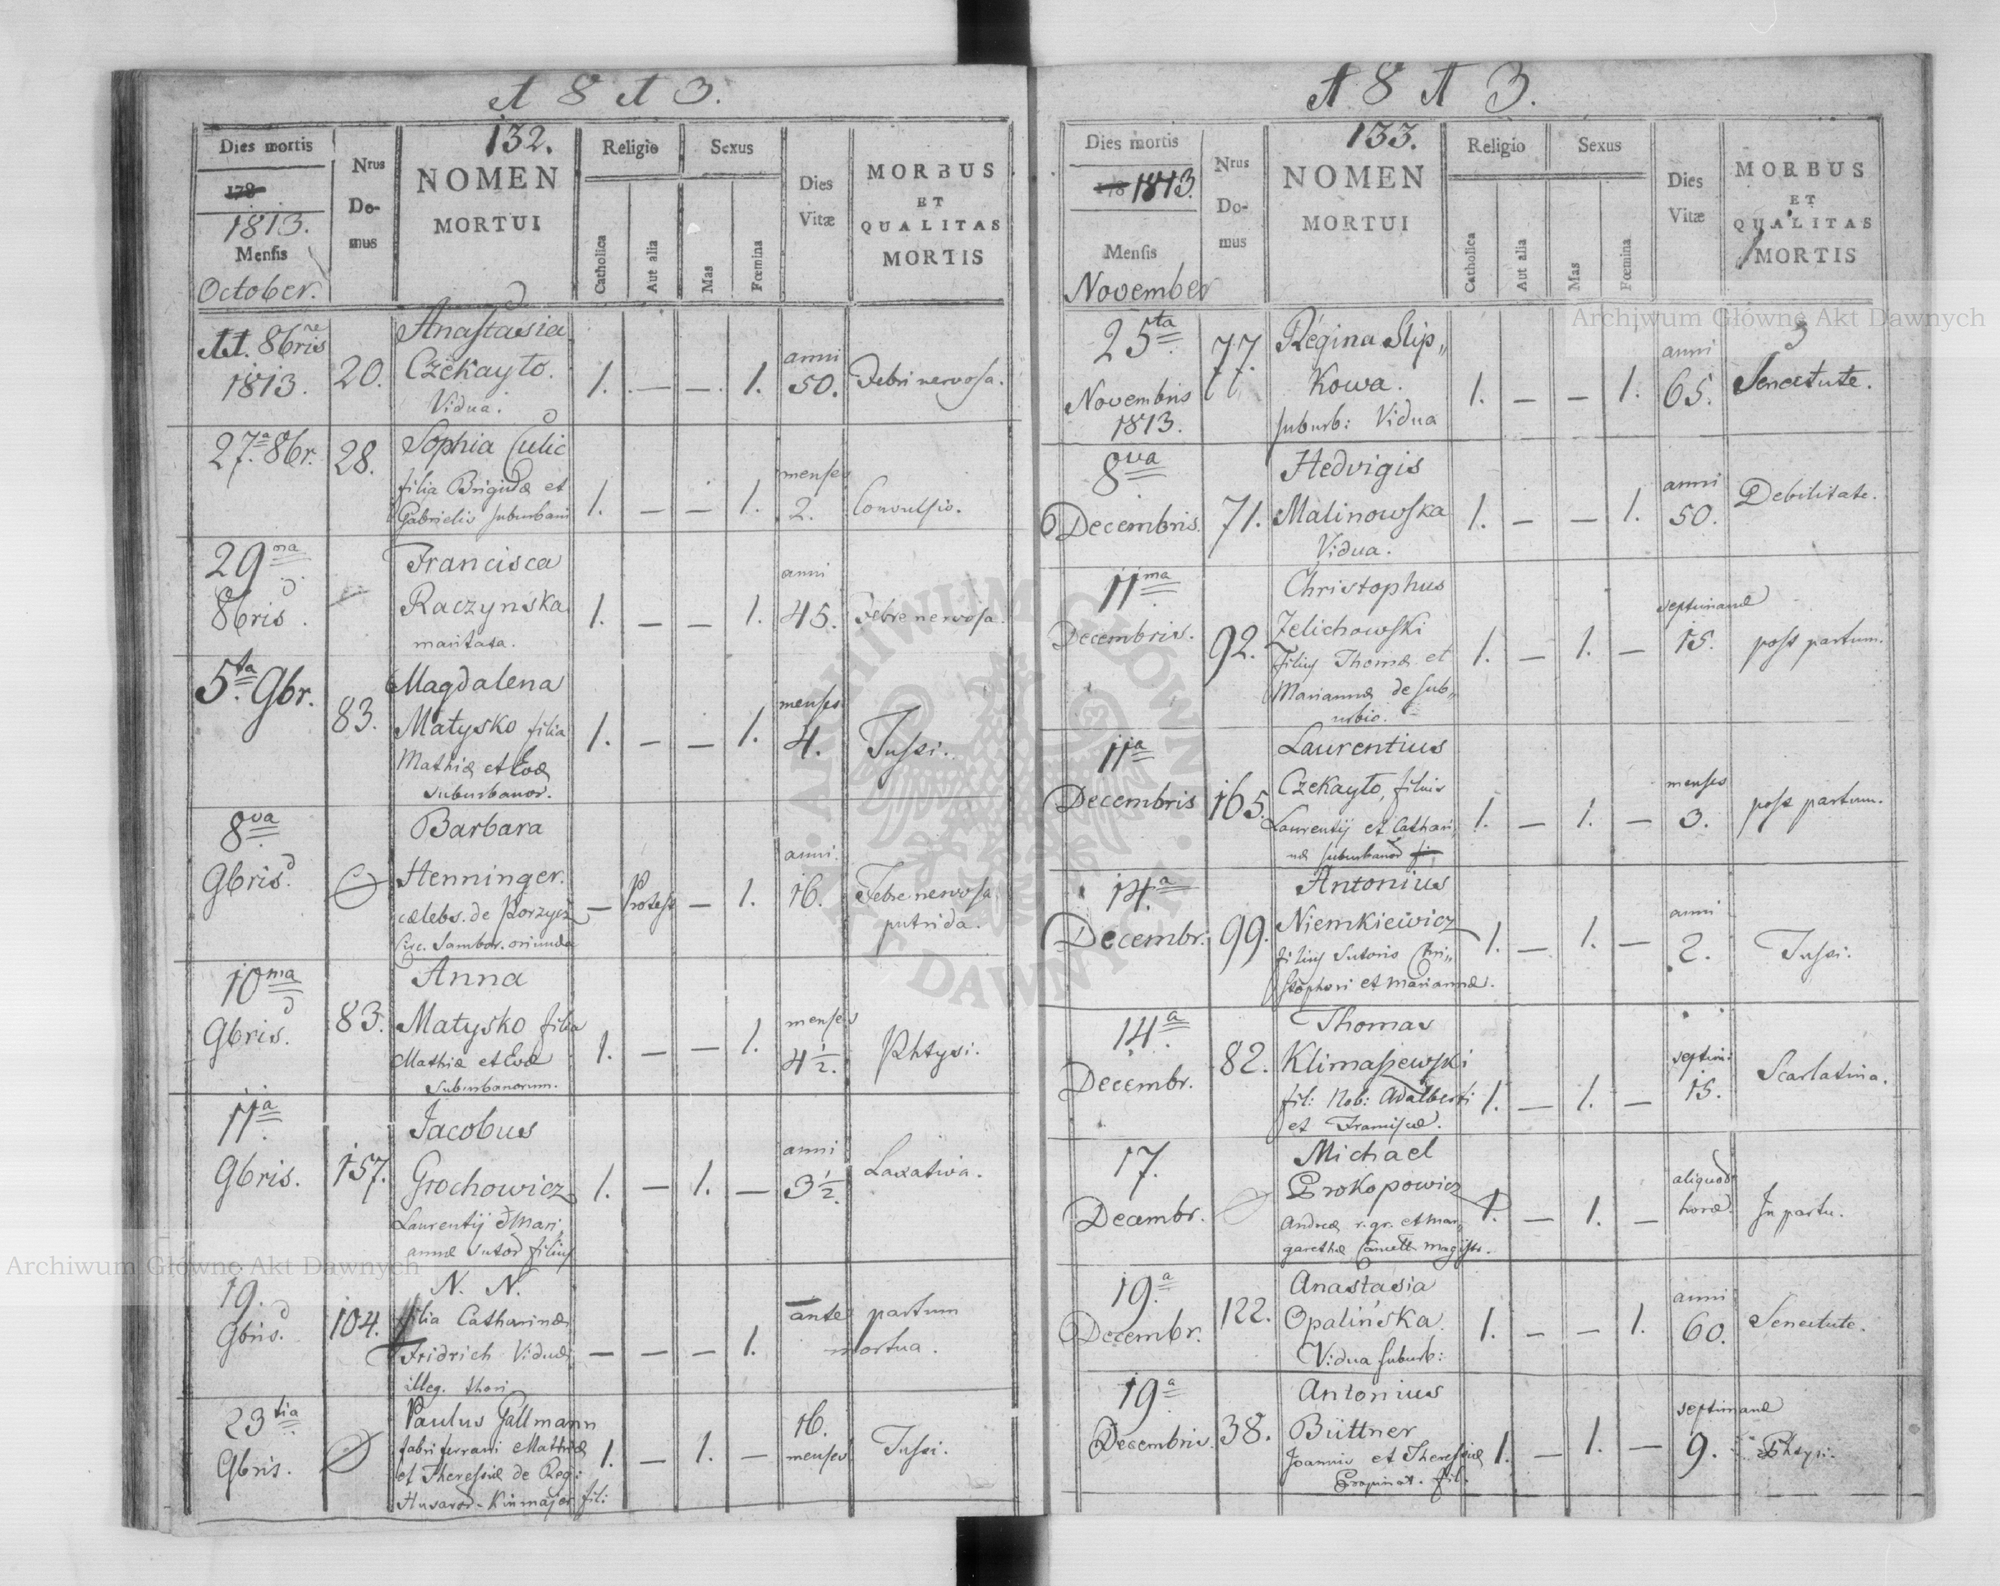 1813.
132.
Dies mortis
178
1813.
Mensis
October.
Nrus
Do-
mus
NOMEN
MORTUI
Religio
Catholica
Aut alia
Sexus
Mas
Fœmina
Dies
Vitæ
MORBUS
ET
QUALITAS
MORTIS
11. 8bris
1813.
20.
Anastasia
Czekayło.
Vidua.
1. — — 1.
anni
50.
Febri nervosa.
27.a 8br.
28.
Sophia Culic
filia Brigidæ et
Gabrielis suburbani
1. — — 1.
menses
2.
Convulsio.
29na
8bris.
Francisca
Raczynska
maritata.
1. — — 1.
anni
45.
Febre nervosa.
5.ta 9br.
83.
Magdalena
Matysko filia
Mathiæ et Evæ
suburbanor.
1. — — 1.
menses
4.
Tussi.
8va
9bris.
Barbara
Henninger.
cælebs. de
Circ. Sambor. oriunda
— Protest — 1.
anni.
16.
Febre nervosa
putrida.
10ma
9bris.
83.
Anna
Matysko filia
Mathiæ et Evæ
suburbanorum.
1. — — 1.
menses
4 1/2.
Phtysi.
11a
9bris.
157.
Jacobus
Grochowicz
Laurentij & Mari,,
annæ filius
1. — 1. —
anni
3 1/2.
Laxativa.
19.
9bris.
104.
N. N.
filia Catharinæ
Fridrich Viduæ
illeg. thori
— — — 1.
ante partum
mortua.
23tia
9bris.
Paulus Gallmann
fabri ferrarii Mathiæ
et Theresiæ de Reg:
Husaror. fili:
1. — 1. —
16.
menses
Tussi.
1813.
133.
Dies mortis
178 1813.
Mensis
November
Nrus
Do-
mus
NOMEN
MORTUI
Religio
Catholica
Aut alia
Sexus
Mas
Fœmina
Dies
Vitæ
MORBUS
ET
QUALITAS
MORTIS
25ta
Novembris
1813.
77.
Regina Slip,,
kowa.
suburb: Vidua
1. — — 1.
anni
65.
Senectute.
8va
Decembris.
71.
Hedvigis
Malinowska
Vidua.
1. — — 1.
anni
50.
Debilitate.
11ma
Decembris.
92.
Christophus
Zelichowski
filius Thomæ et
Mariannæ de sub,,
urbio.
1. — 1. —
septimanæ
15.
post partum.
11a
Decembris
165.
Laurentius
Czekayło, filius
Laurentij et Cathari,,
næ suburbanor
1. — 1. —
menses
3.
post partum.
14.a
Decembr.
99.
Antonius
Niemkiewicz
filius Sutoris Chri,,
stophori et Mariannæ.
1. — 1. —
anni
2.
Tussi.
14.a
Decembr.
82.
Thomas
Klimaszewski
fil: Nob: Adalberti
et Franciscæ.
1. — 1. —
septim:
15.
Scarlatina.
17.
Decembr.
Michael
Prokopowicz
Andreæ r. gr. et Mar,,
garethæ magistr.
1. — 1. —
aliquod
horæ.
In partu.
19.a
Decembr.
122.
Anastasia
Opalińska.
Vidua suburb:
1. — — 1.
anni
60.
Senectute.
19.a
Decembris.
38.
Antonius
Büttner
Joannis et Theresiæ
Propinat. fil.
1. — 1. —
septimanæ
9.
Phtysi.
Archiwum Główne Akt Dawnych
Archiwum Główne Akt Dawnych
ARCHIWUM GŁÓWNE AKT DAWNYCH